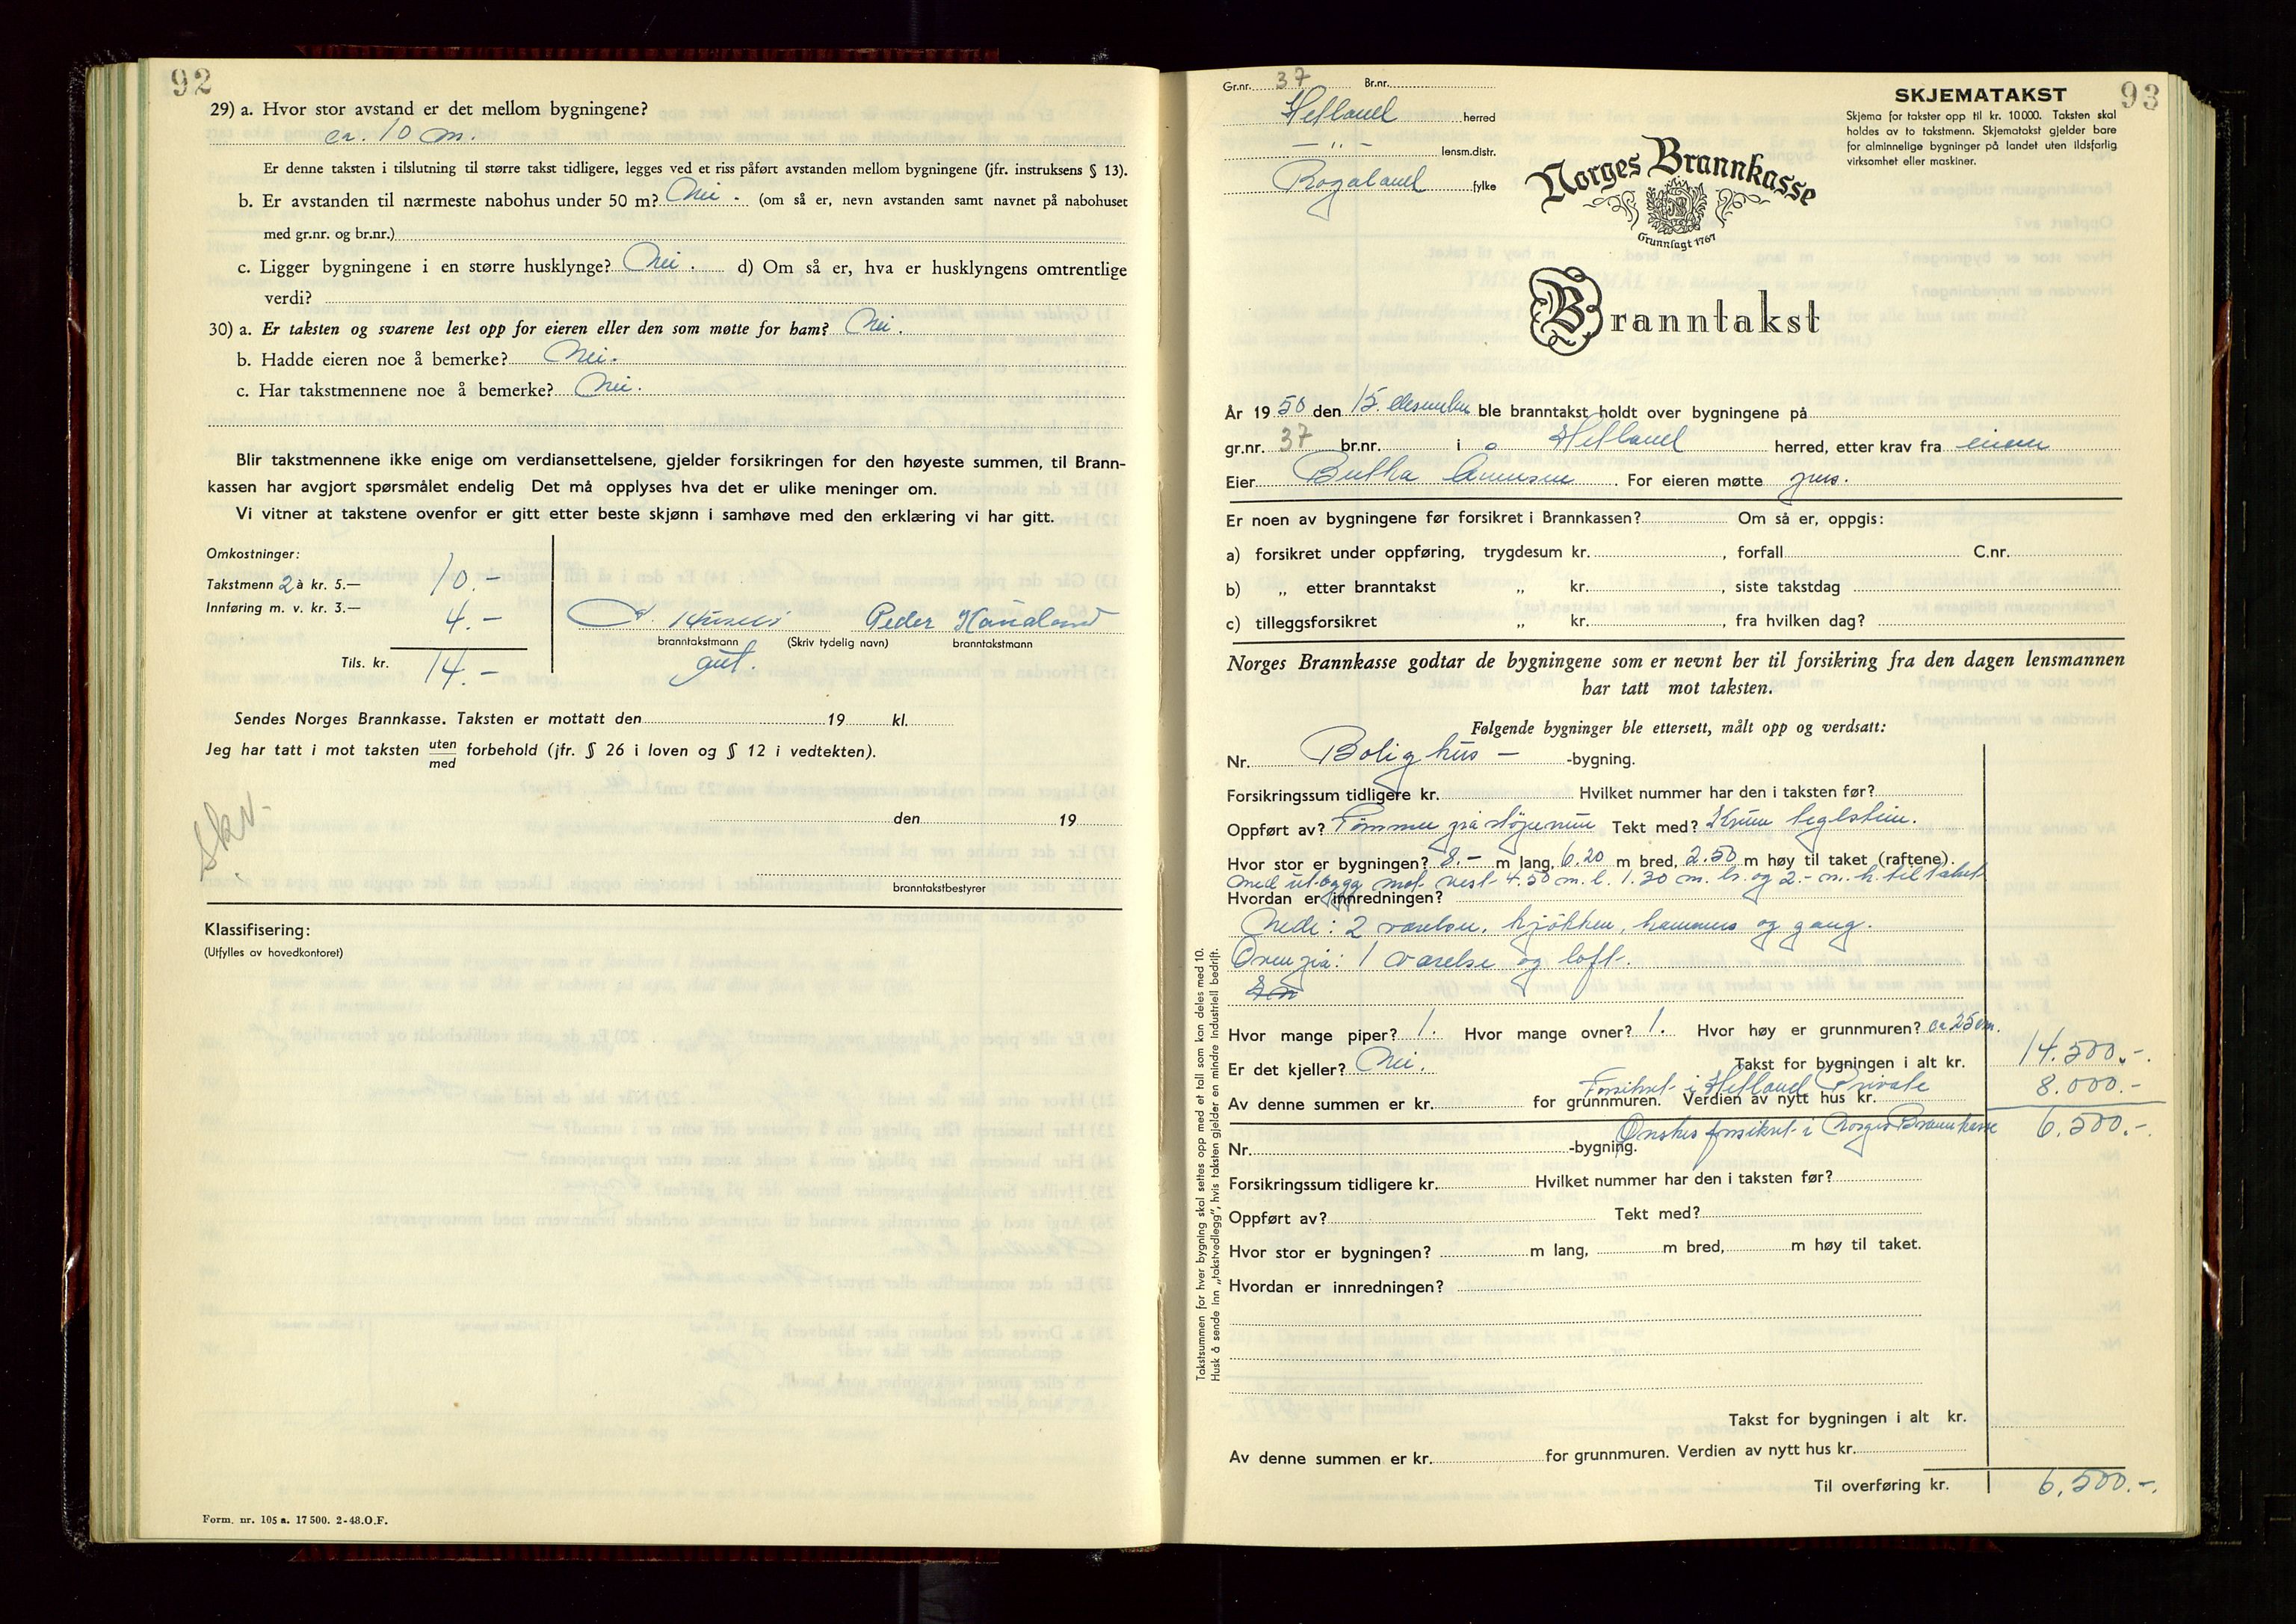 92
29) a. Hvor stor avstand er det mellom bygningene?
ca. 10 m.
Er denne taksten i tilslutning til større takst tidligere, legges ved et riss påført avstanden mellom bygningene (jfr. instruksens § 13).
b. Er avstanden til nærmeste nabohus under 50 m? Nei. (om så er, nevn avstanden samt navnet på nabohuset
med gr.nr. og br.nr.)
c. Ligger bygningene i en større husklynge? Nei. d) Om så er, hva er husklyngens omtrentlige
verdi?
30) a. Er taksten og svarene lest opp for eieren eller den som møtte for ham? Nei.
b. Hadde eieren noe å bemerke? Nei.
c. Har takstmennene noe å bemerke? Nei.
Blir takstmennene ikke enige om verdiansettelsene, gjelder forsikringen for den høyeste summen, til Brann-
kassen har avgjort spørsmålet endelig Det må opplyses hva det er ulike meninger om.
Vi vitner at takstene ovenfor er gitt etter beste skjønn i samhøve med den erklæring vi har gitt.
Omkostninger:
Takstmenn 2 à kr. 5.— 10.-
Innføring m. v. kr. 3.— 4.-
Peder Hanaland
branntakstmann (Skriv tydelig navn) branntakstmann
Tils. kr. 14.-
Sendes Norges Brannkasse. Taksten er mottatt den 19 kl.
Jeg har tatt i mot taksten uten forbehold (jfr. § 26 i loven og § 12 i vedtekten).
med
den 19
Skv.
branntakstbestyrer
Klassifisering:
(Utfylles av hovedkontoret)
Form. nr. 105 a. 17 500. 2-48.O.F.
93
Gr.nr. 37 Br.nr.
Hetland herred
— „ — lensm.distr.
Rogaland fylke
SKJEMATAKST
Skjema for takster opp til kr. 10 000. Taksten skal
holdes av to takstmenn. Skjematakst gjelder bare
for alminnelige bygninger på landet uten ildsfarlig
virksomhet eller maskiner.
Norges Brannkasse
Grunnlagt 1767
Branntakst
År 19 50 den 15. desember ble branntakst holdt over bygningene på
gr.nr. 37 br.nr. i Hetland herred, etter krav fra eieren
Eier Bertha For eieren møtte
Er noen av bygningene før forsikret i Brannkassen? Om så er, oppgis:
a) forsikret under oppføring, trygdesum kr. , forfall C.nr.
b) „ etter branntakst „ kr. , siste takstdag
c) tilleggsforsikret „ kr. , fra hvilken dag?
Norges Brannkasse godtar de bygningene som er nevnt her til forsikring fra den dagen lensmannen
har tatt mot taksten.
Følgende bygninger ble ettersett, målt opp og verdsatt:
Nr. Bolighus — -bygning.
Forsikringssum tidligere kr. Hvilket nummer har den i taksten før?
Oppført av? Tømmer på Tekt med? Krum teglstein.
Hvor stor er bygningen? 8.- m lang, 6.20 m bred, 2.50 m høy til taket (raftene).
med utbygg mot vest 4.50 m. l. 1.30 m. br. og 2.- m. h. til taket
Hvordan er innredningen?
Nede: 2 værelser, kjøkken, kammers og gang.
Ovenpå: 1 værelse og loft.
Hvor mange piper? 1. Hvor mange ovner? 1. Hvor høy er grunnmuren? ca 25 cm.
Er det kjeller? Nei. Takst for bygningen i alt kr. 14.500.-
Forsikret i Hetland Private 8.000.-
Av denne summen er kr. for grunnmuren. Verdien av nytt hus kr.
Ønskes forsikret i Norges Brannkasse 6.500.-
Nr. -bygning.
Forsikringssum tidligere kr. Hvilket nummer har den i taksten før?
Oppført av? Tekt med?
Hvor stor er bygningen? m lang, m bred, m høy til taket.
Hvordan er innredningen?
Takst for bygningen i alt kr.
Av denne summen er kr. for grunnmuren. Verdien av nytt hus kr.
Til overføring kr. 6.500.-
Takstsummen for hver bygning skal settes opp med et tall som kan deles med 10.
Husk å sende inn „takstvedlegg”, hvis taksten gjelder en mindre industriell bedrift.